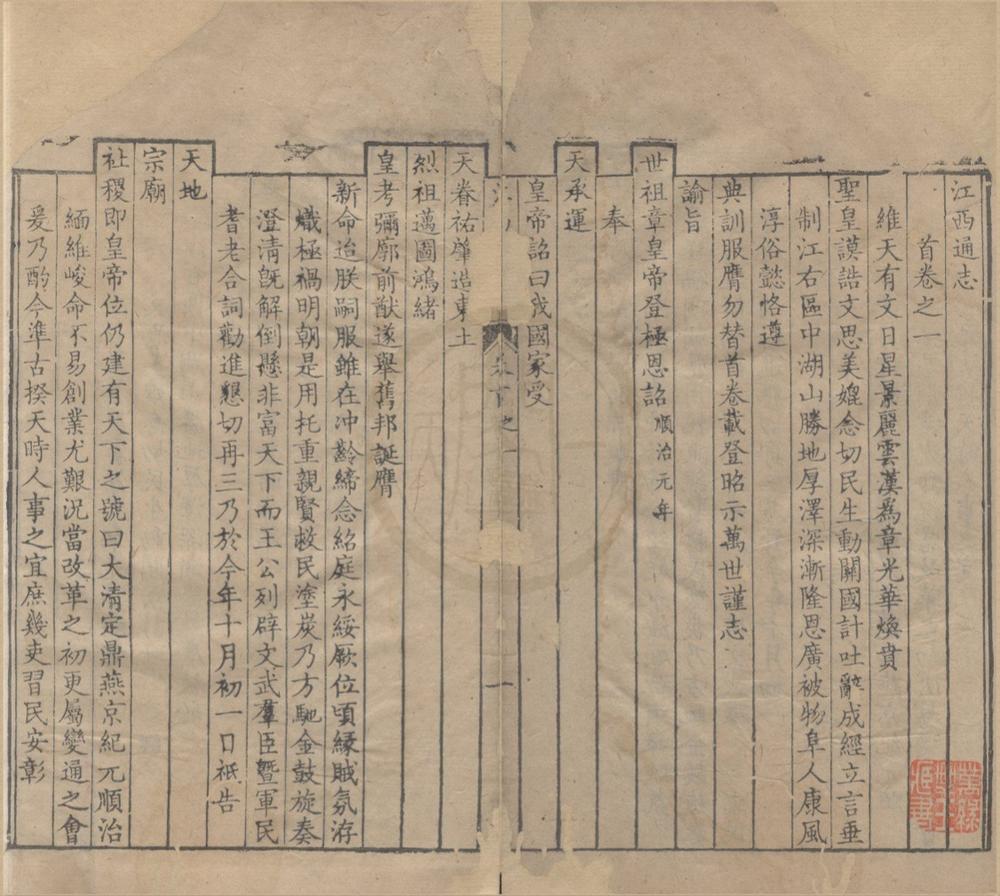 江西通志
首卷之一
維天有文日星景麗雲漢爲章光華煥賁
聖皇謨誥文思美媲念切民生動關國計吐辭成經立言垂
制江右區中湖山勝地厚澤深漸隆恩廣被物阜人康風
淳俗懿恪遵
典訓服膺勿替首卷載登昭示萬世謹志
諭旨
世祖章皇帝登極恩詔順治元年
奉
天承運
皇帝詔曰我國家受
之一
一
天眷祐肇造東土
烈祖邁圖鴻緒
皇考彌廓前猷遂舉舊邦誕膺
新命迨朕嗣服雖在冲齡締念紹庭永綏厥位頃緣賊氛洊
熾極禍明朝是用托重親賢救民塗炭乃方馳金鼓旋奏
澄清旣解倒懸非富天下而王公列辟文武羣臣暨軍民
耆老合詞勸進懇切再三乃於今年十月初一日祇告
天地
宗廟
社稷即皇帝位仍建有天下之號曰大清定鼎燕京紀元順治
緬維峻命不易創業尤艱況當改革之初更屬變通之會
爰乃酌今準古揆天時人事之宜庶幾吏習民安彰